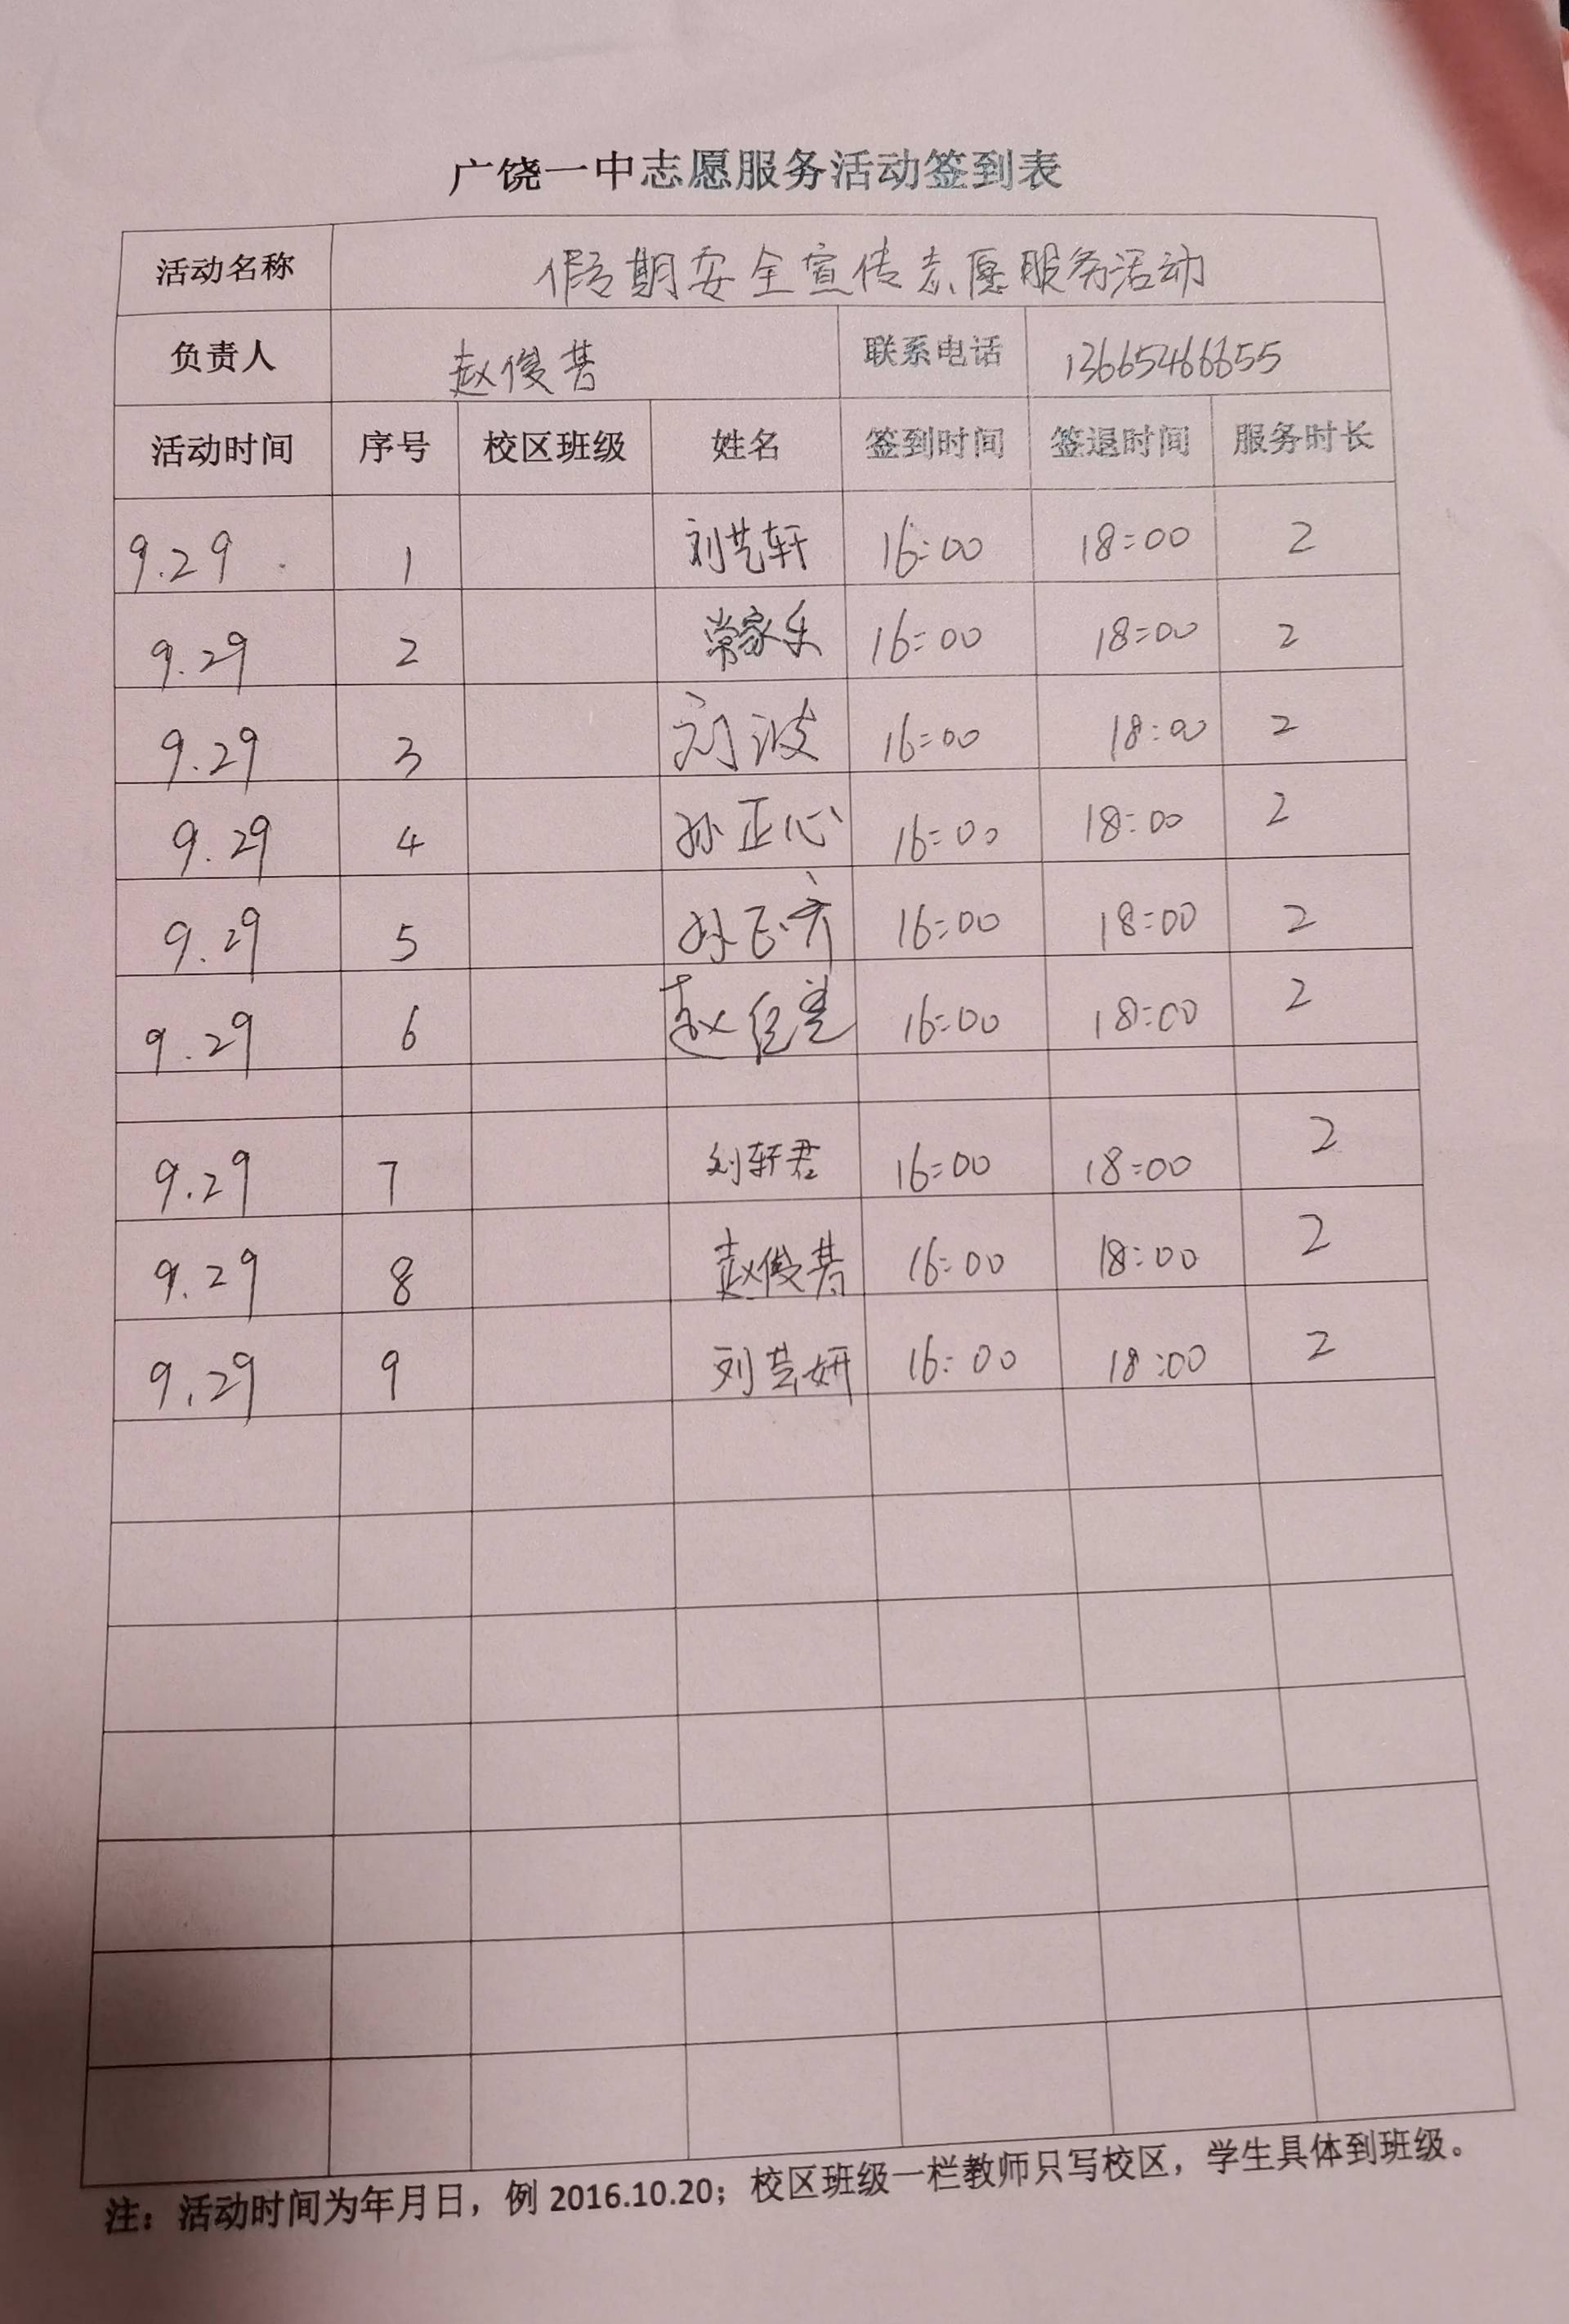 广饶一中志愿服务活动签到表
活动名称 假期安全宣传志愿服务活动
负责人 赵俊普 联系电话 13665466655
活动时间 序号 校区班级 姓名 签到时间 签退时间 服务时长
9.29 1 刘艺轩 16:00 18:00 2
9.29 2 常家乐 16:00 18:00 2
9.29 3 刘波 16:00 18:00 2
9.29 4 孙正心 16:00 18:00 2
9.29 5 孙正齐 16:00 18:00 2
9.29 6 赵 16:00 18:00 2
9.29 7 刘轩君 16:00 18:00 2
9.29 8 赵俊普 16:00 18:00 2
9.29 9 刘芸妍 16:00 18:00 2
注：活动时间为年月日，例 2016.10.20；校区班级一栏教师只写校区，学生具体到班级。